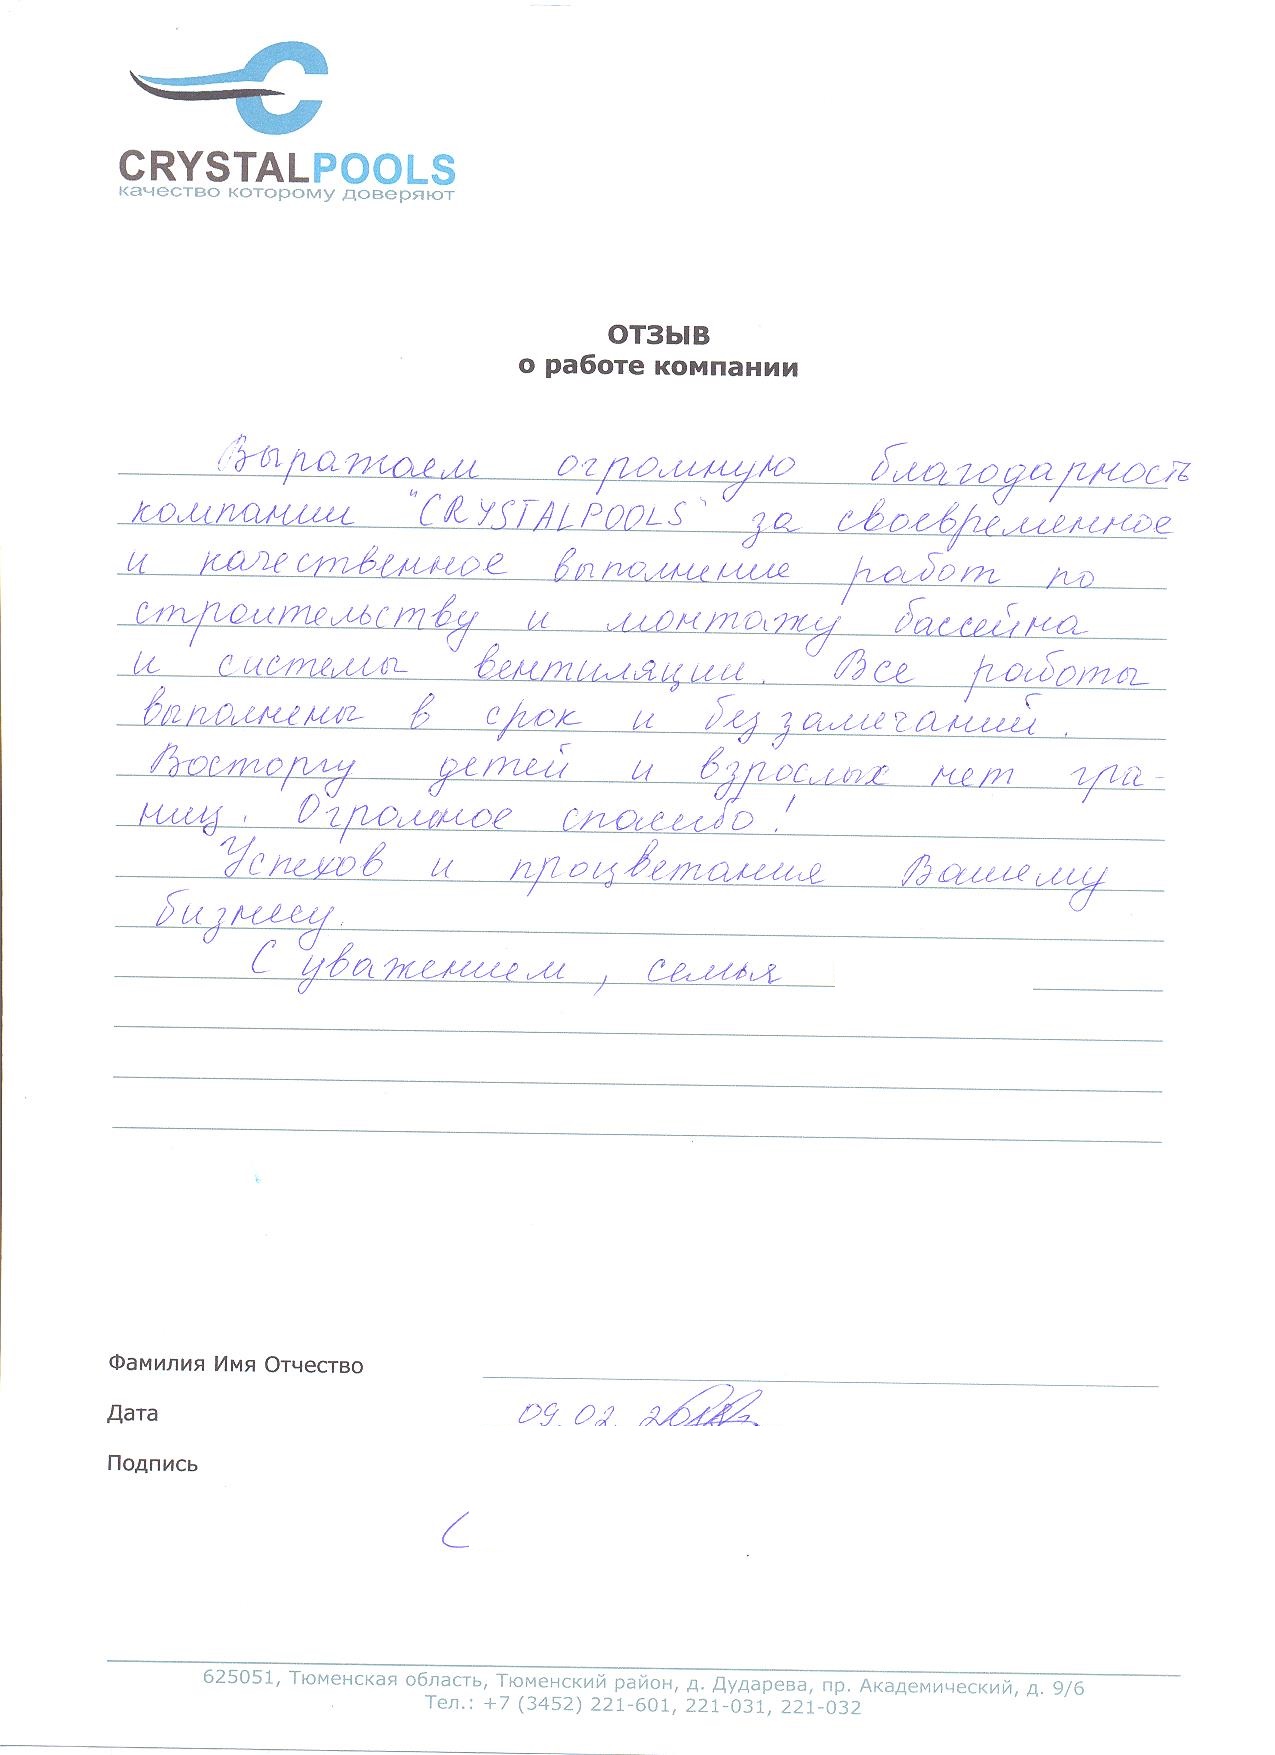 CRYSTALPOOLS
качество которому доверяют
ОТЗЫВ
о работе компании
Выражаем огромную благодарность
компании "CRYSTALPOOLS" за своевременное
и качественное выполнение работ по
строительству и монтажу бассейна
и системы вентиляции. Все работы
выполнены в срок и без замечаний.
Восторгу детей и взрослых нет гра-
ниц. Огромное спасибо!
Успехов и процветания Вашему
бизнесу.
С уважением, семья
Фамилия Имя Отчество
Дата 09.02.
Подпись
625051, Тюменская область, Тюменский район, д. Дударева, пр. Академический, д. 9/6
Тел.: +7 (3452) 221-601, 221-031, 221-032